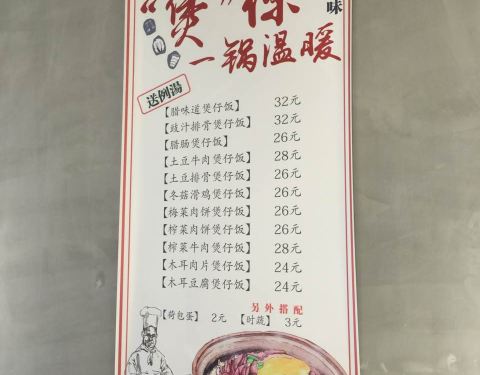 “煲”你
味
一锅温暖
送例湯
【腊味道煲仔饭】 32元
【豉汁排骨煲仔饭】 32元
【腊肠煲仔饭】 26元
【土豆牛肉煲仔饭】 28元
【土豆排骨煲仔饭】 26元
【冬菇滑鸡煲仔饭】 26元
【梅菜肉饼煲仔饭】 26元
【榨菜肉饼煲仔饭】 26元
【榨菜牛肉煲仔饭】 28元
【木耳肉片煲仔饭】 24元
【木耳豆腐煲仔饭】 24元
另外搭配
【荷包蛋】 2元 【时蔬】 3元